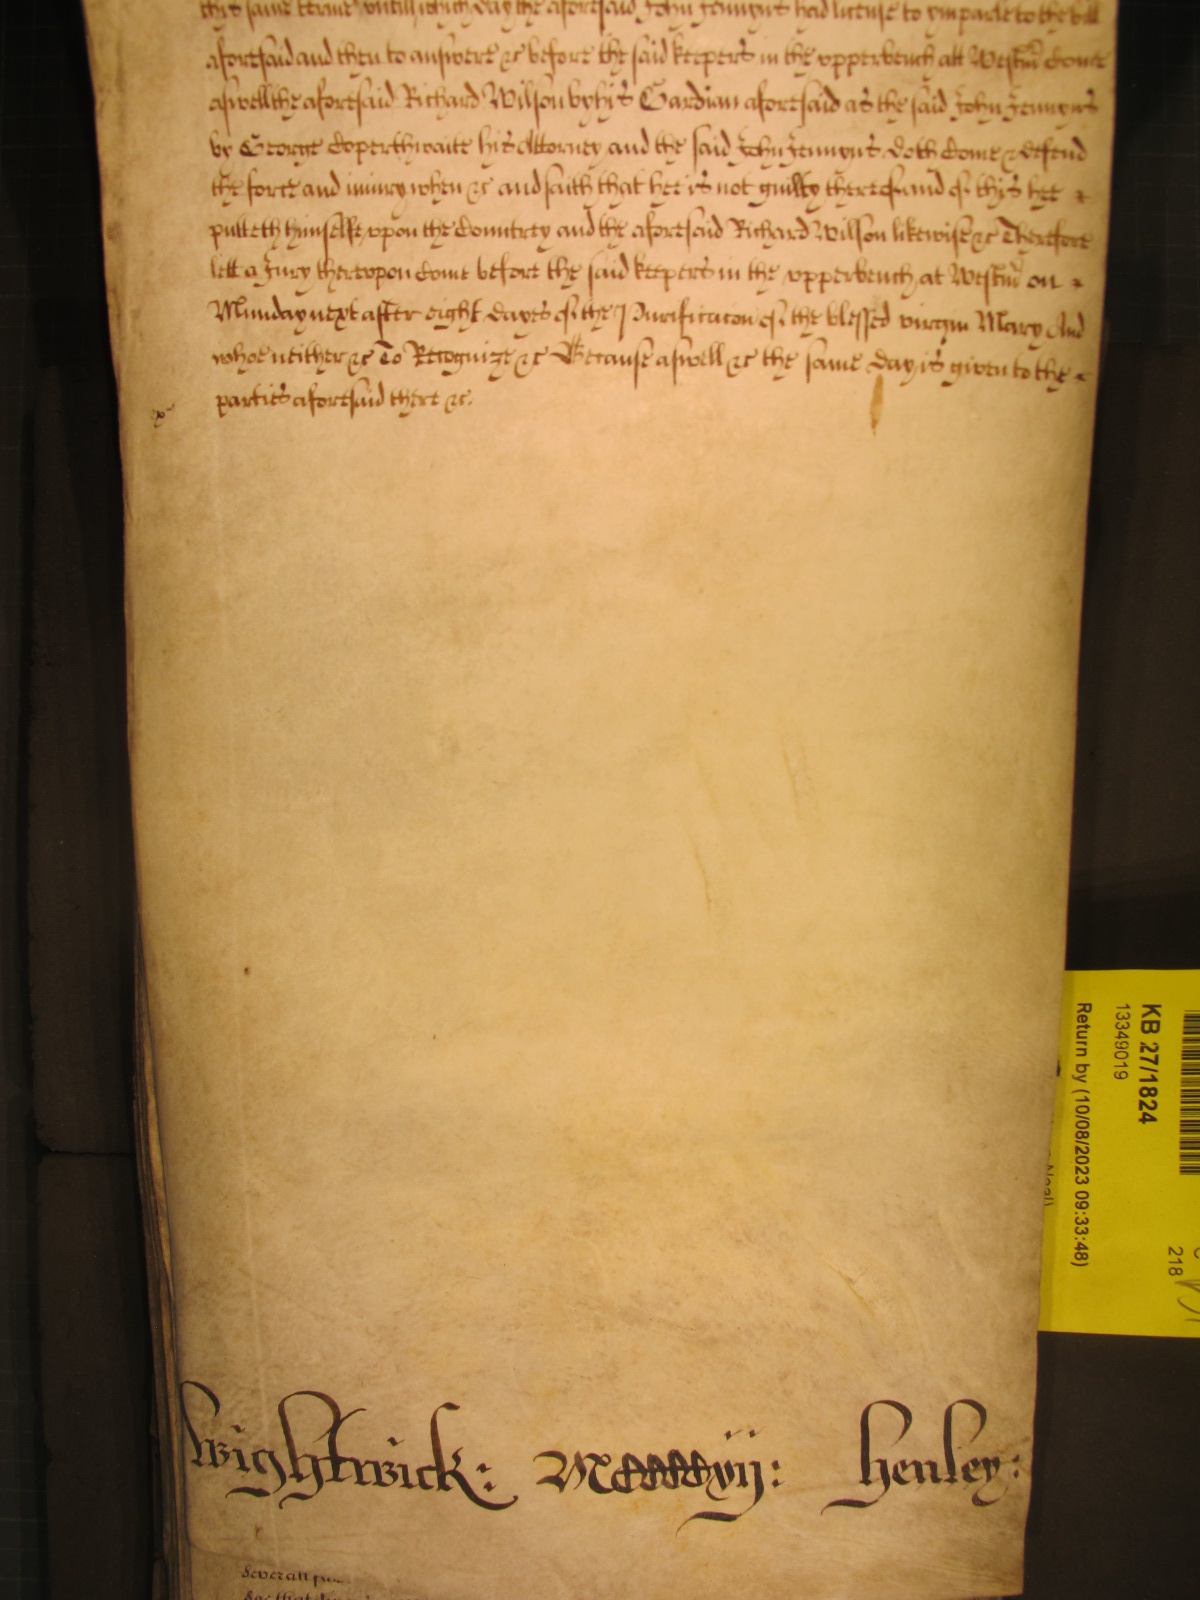 this same terme untill which day the aforesaid John Jennyns had license to ymparle to the bill
aforesaid and then to answere &c before the said keepers in the upperbench att Westm̃ Come
aswell the aforesaid Richard Wilson by his Gardian aforesaid as the said John Jennyns
by George Coperthwaite his Attorney and the said John Jennyns doth Come & defend
the force and iniury when &c and saith that hee is not guilty thereof and of this hee
putteth himselfe upon the Countrey and the aforesaid Richard Wilson likewise &c Therefore
lett a Jury thereupon Come before the said keepers in the upperbench at Westm̃ on
Munday next after eight dayes of the Purificacon of the blessed virgin Mary And
whoe neither &c To Recognize &c Because aswell &c the same day is given to the
parties aforesaid there &c.
Wightwick: Mccccxvij: Henley:
Severall
KB 27/1824
13349019
Return by (10/08/2023 09:33:48)
218